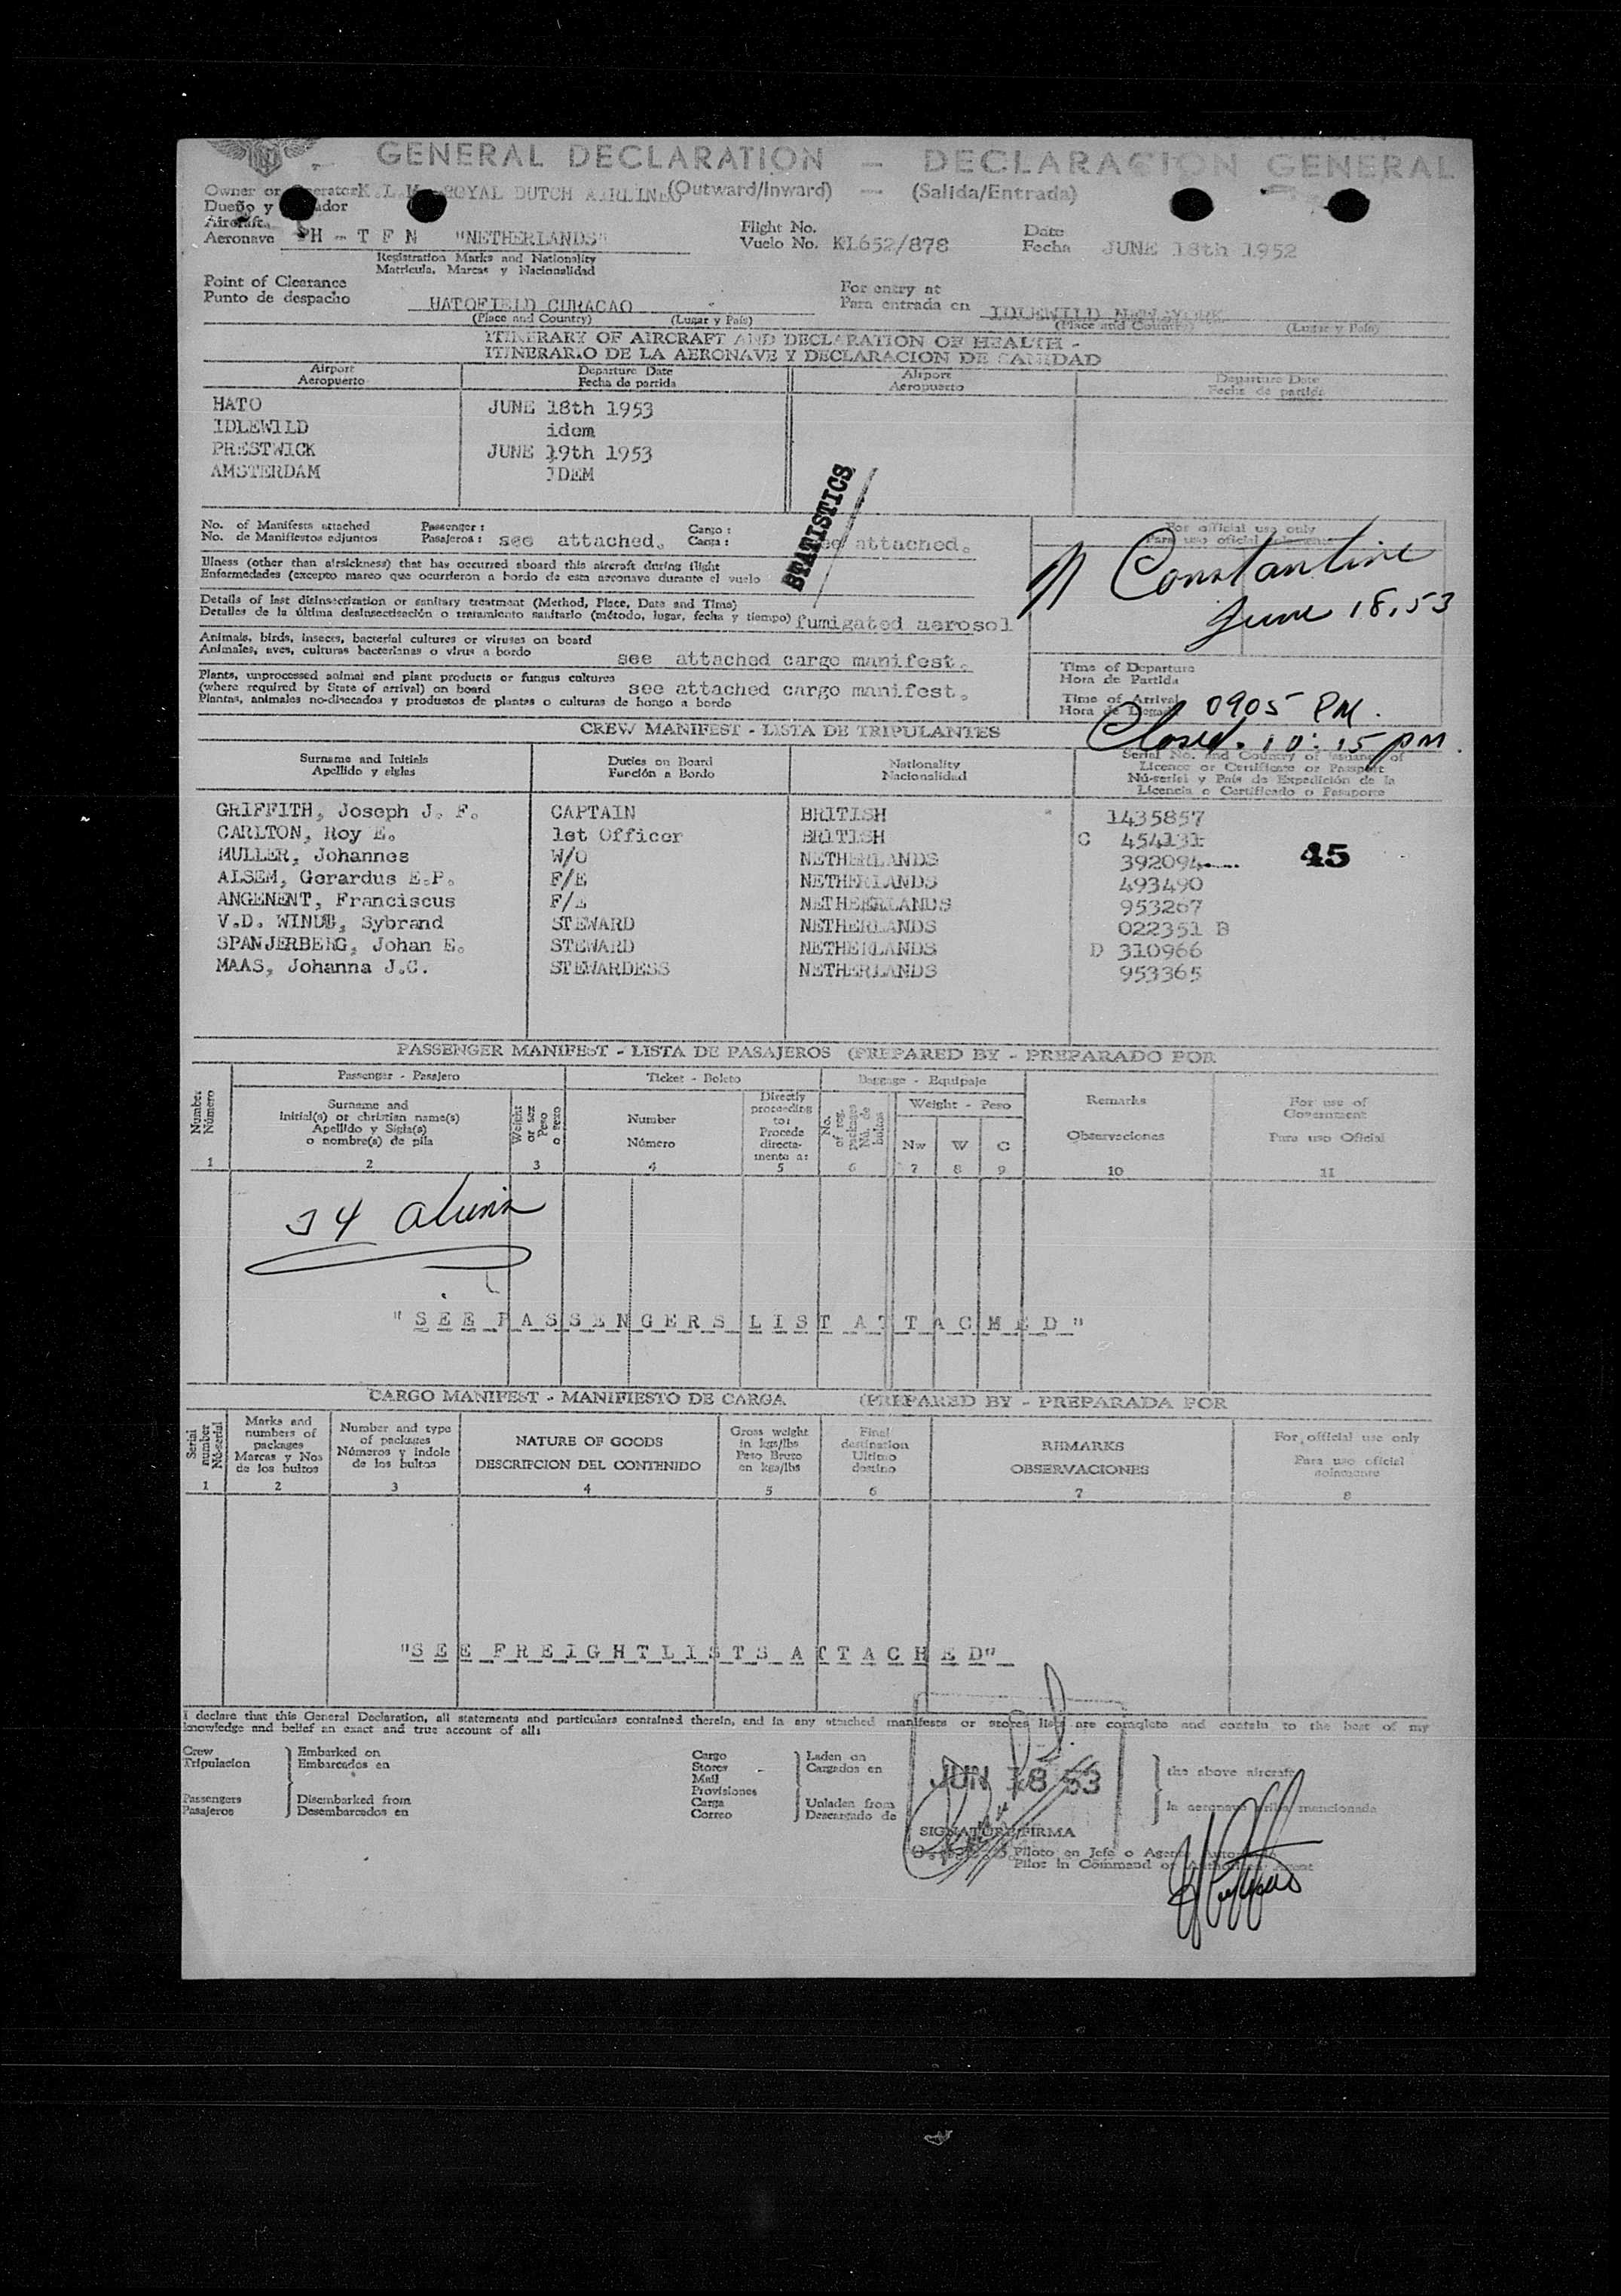 GENERAL DECLARATION — DECLARACION GENERAL
Owner or Operator K.L.M. ROYAL DUTCH AIRLINES (Outward/Inward) — (Salida/Entrada)
Dueño y
Aircraft
Aeronave PH - T F N "NETHERLANDS"
Flight No.
Vuelo No. KL652/878
Date
Fecha JUNE 18th 1952
Registration Marks and Nationality
Matricula, Marcas y Nacionalidad
Point of Clearance
Punto de despacho HATOFIELD CURACAO
(Place and Country) (Lugar y País)
For entry at
Para entrada en IDLEWILD NEW YORK
(Place and Country) (Lugar y País)
ITINERARY OF AIRCRAFT AND DECLARATION OF HEALTH -
ITINERARIO DE LA AERONAVE Y DECLARACION DE SANIDAD
Airport Departure Date Airport Departure Date
Aeropuerto Fecha de partida Aeropuerto Fecha de partida
HATO JUNE 18th 1953
IDLEWILD idem
PRESTWICK JUNE 19th 1953
AMSTERDAM IDEM
STATISTICS
No. of Manifests attached Passenger : Cargo :
No. de Manifiestos adjuntos Pasajeros : see attached. Carga : see attached.
Illness (other than airsickness) that has occurred aboard this aircraft during flight
Enfermedades (excepto mareo que ocurrieron a bordo de esta aeronave durante el vuelo
Details of last disinsectization or sanitary treatment (Method, Place, Date and Time)
Detalles de la última desinsectisación o tratamiento sanitario (método, lugar, fecha y tiempo) fumigated aerosol
Animals, birds, insects, bacterial cultures or viruses on board
Animales, aves, culturas bacterianas o virus a bordo see attached cargo manifest.
Plants, unprocessed animal and plant products or fungus cultures
(where required by State of arrival) on board see attached cargo manifest.
Plantas, animales no-disecados y productos de plantas o culturas de hongo a bordo
For official use only
Para uso oficial solamente
Constantine
June 18, 53
Time of Departure
Hora de Partida
Time of Arrival
Hora de Llegada 0905 PM.
Closed. 10:15 pm.
CREW MANIFEST - LISTA DE TRIPULANTES
Surname and Initials Duties on Board Nationality Serial No. and Country of Issuance of
Apellido y siglas Función a Bordo Nacionalidad Licence or Certificate or Passport
Nú-seriel y País de Expedición de la
Licencia o Certificado o Pasaporte
GRIFFITH, Joseph J. F. CAPTAIN BRITISH 1435857
CARLTON, Roy E. 1st Officer BRITISH C 454131
MULLER, Johannes W/O NETHERLANDS 392094
45
ALSEM, Gerardus E.P. F/E NETHERLANDS 493490
ANGENENT, Franciscus F/E NETHEERLANDS 953267
V.D. WINDE, Sybrand STEWARD NETHERLANDS 022351 B
SPANJERBERG, Johan E. STEWARD NETHERLANDS D 310966
MAAS, Johanna J.C. STEWARDESS NETHERLANDS 953365
PASSENGER MANIFEST - LISTA DE PASAJEROS (PREPARED BY - PREPARADO POR
Number
Número
Passenger - Pasajero Ticket - Boleto Baggage - Equipaje
Surname and
initial(s) or christian name(s)
Apellido y Sigla(s)
o nombre(s) de pila
Weight
or sex
Peso
o sexo
Number
Número
Directly
proceeding
to:
Procede
directa-
mente a:
No.
of reg.
packages
Nú. de
bultos
Weight - Peso
Nw W C
Remarks
Observaciones
For use of
Government
Para uso Oficial
1 2 3 4 5 6 7 8 9 10 11
"SEE PASSENGERS LIST ATTACHED"
CARGO MANIFEST - MANIFIESTO DE CARGA (PREPARED BY - PREPARADA POR
Serial
number
Nú-serial
Marks and
numbers of
packages
Marcas y Nos
de los bultos
Number and type
of packages
Números y indole
de los bultos
NATURE OF GOODS
DESCRIPCION DEL CONTENIDO
Gross weight
in kgs/lbs
Peso Bruto
en kgs/lbs
Final
destination
Ultimo
destino
REMARKS
OBSERVACIONES
For official use only
Para uso oficial
solamente
1 2 3 4 5 6 7 8
"SEE FREIGHTLISTS ATTACHED"
I declare that this General Declaration, all statements and particulars contained therein, and in any attached manifests or stores lists are complete and contain to the best of my
knowledge and belief an exact and true account of all:
Crew
Tripulacion
Embarked on
Embarcados en
Passengers
Pasajeros
Disembarked from
Desembarcados en
Cargo
Stores
Mail
Provisiones
Carga
Correo
Laden on
Cargados en
Unladen from
Descargado de
JUN 18 53
the above aircraft
la aeronave arriba mencionada
SIGNATURE/FIRMA
Piloto en Jefe o Agente Autorizado
Pilot in Command or Authorized Agent